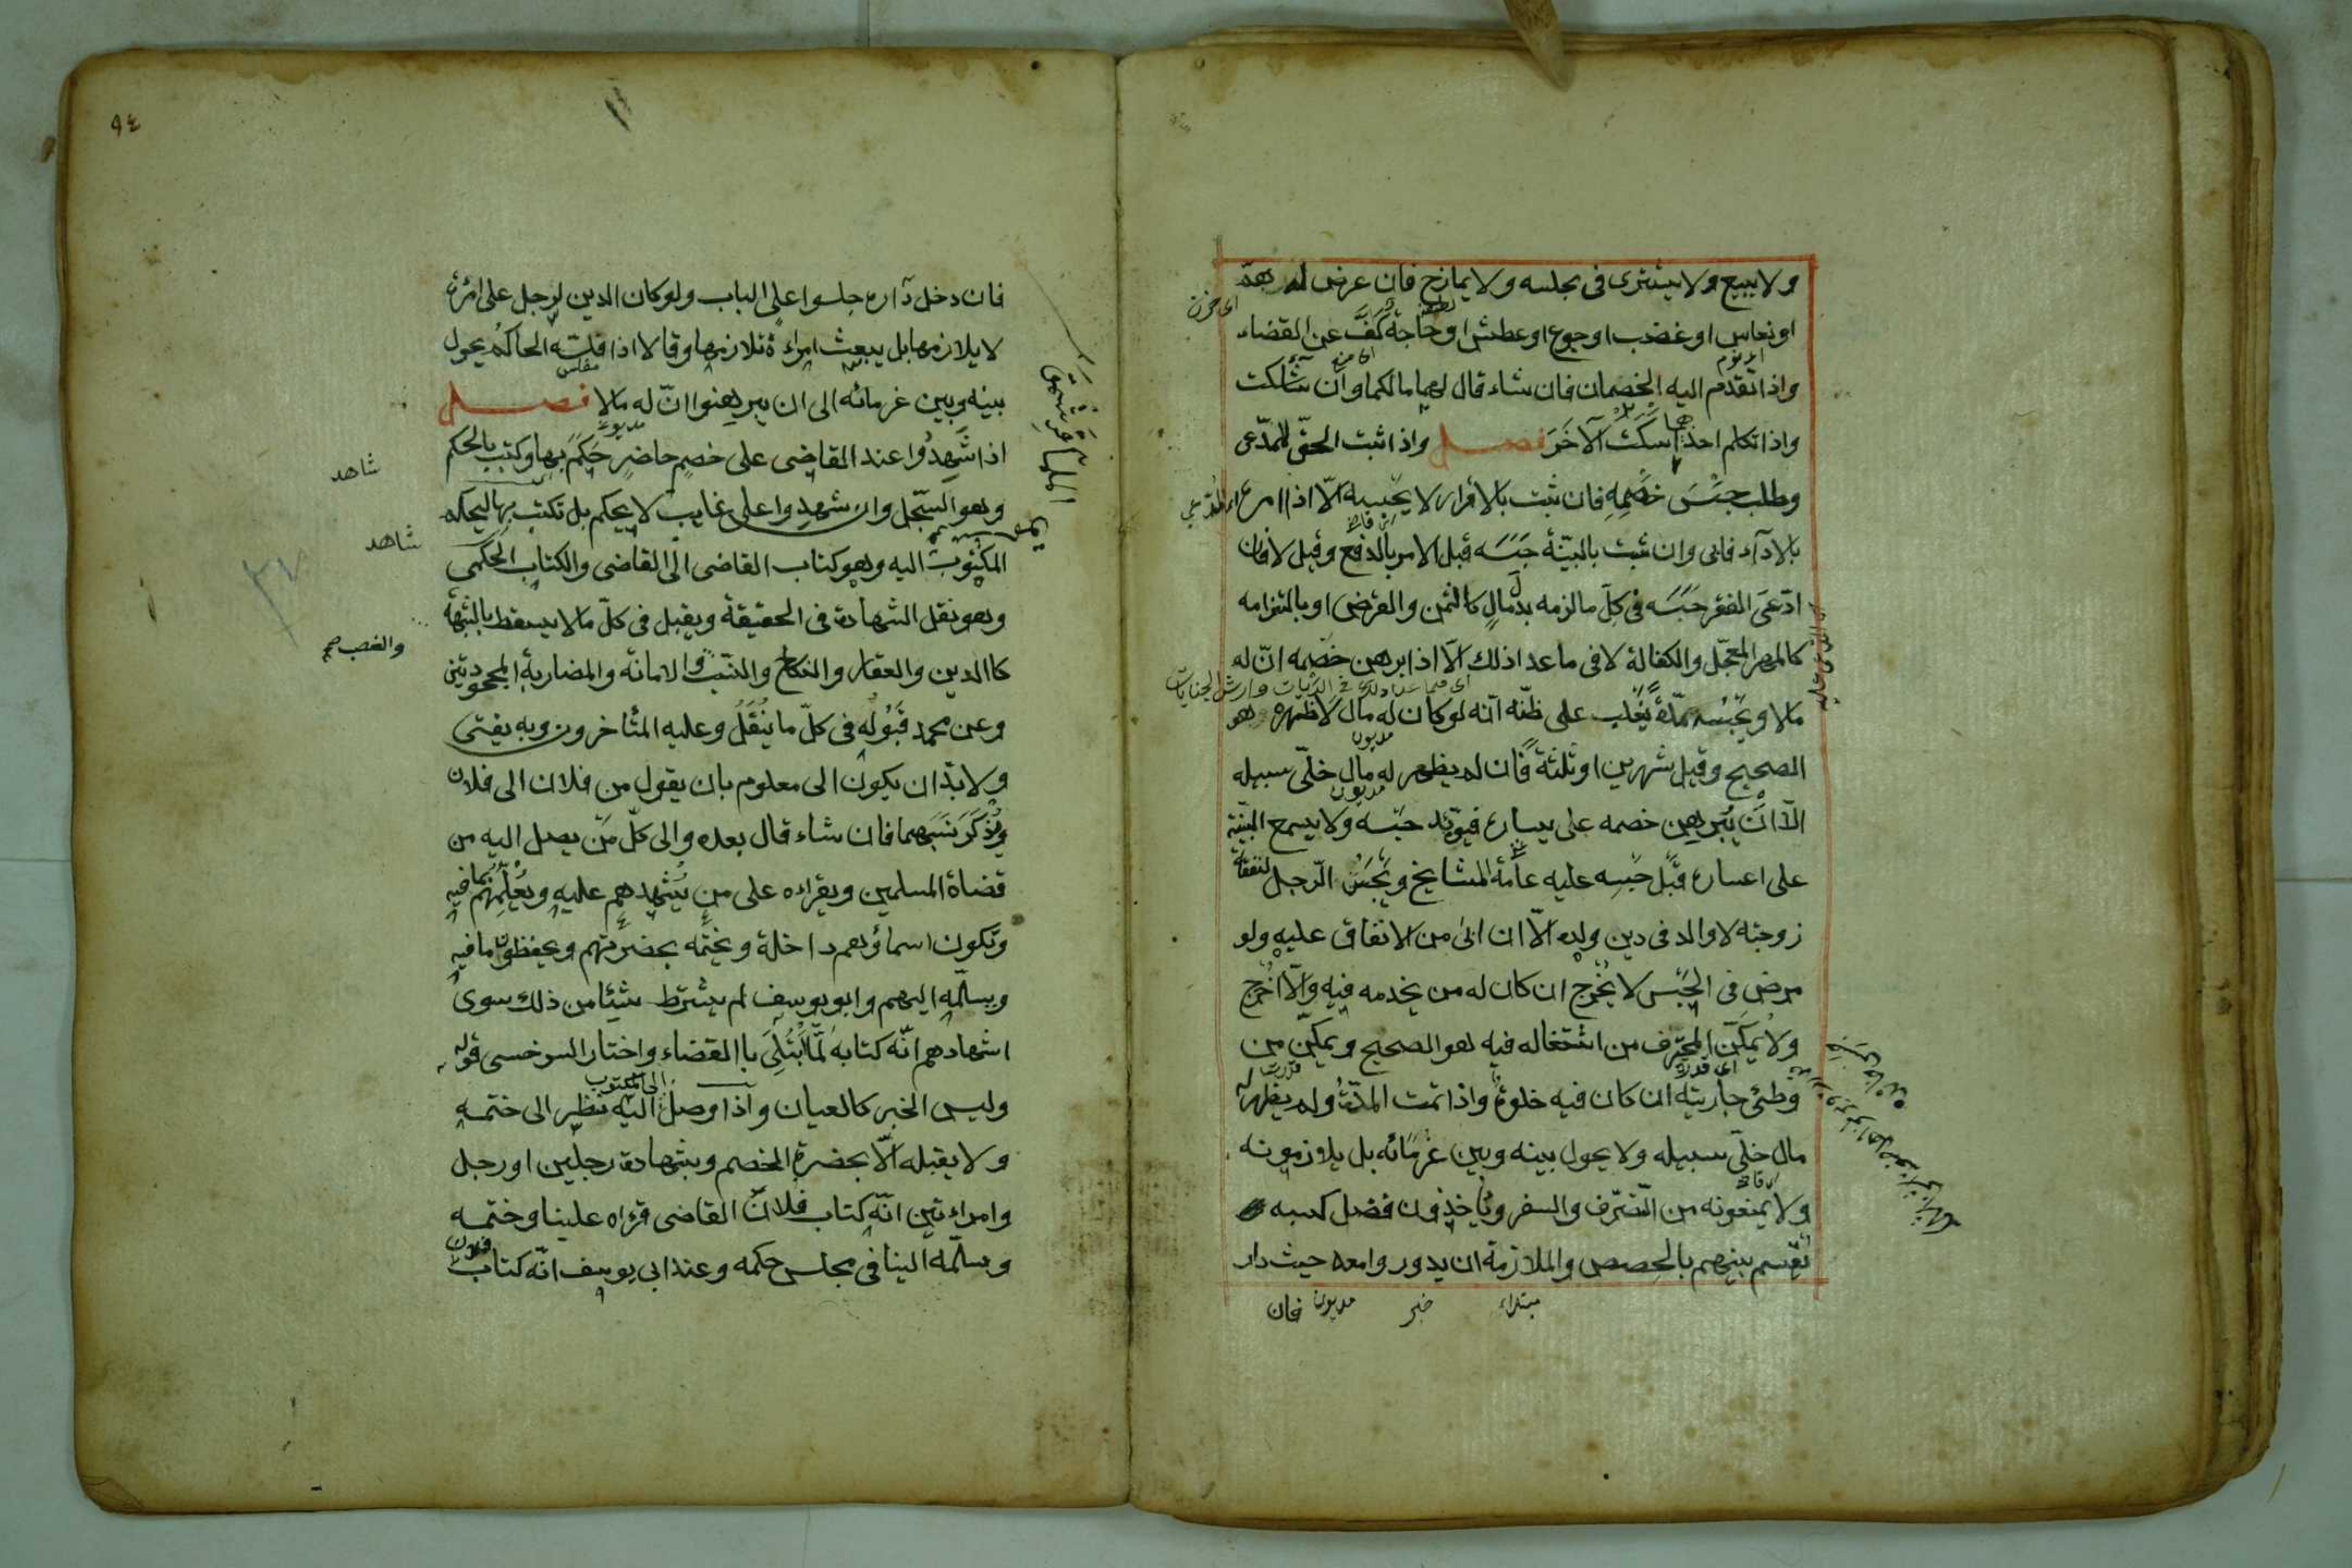 ولا يبيع ولا يشترى فى مجلسه ولا يمازح فان عرض له همّ
اى حزن
او نعاس او غضب او جوع او عطش او حاجة كفّ عن القضاء
واذا تقدم اليه الخصمان فان شاء قال لهما مالكما وان شاء سكت
واذا تكلم احدهما اسكت الآخر فصل واذا ثبت الحقّ للمدّعى
وطلب حبس خصمه فان ثبت بالاقرار لا يحبسه الّا اذا امره
بالادآء فابى وان ثبت بالبيّنة حبسه قبل الامر بالدفع وقيل لا فان
ادّعى الفقر حبسه فى كلّ ما لزمه بدل مال كالثمن والقرض او بالتزامه
كالمهر المعجّل والكفالة لا فى ما عدا ذلك الّا اذا برهن خصمه انّ له
اى فيما عدا ذلك فى الديات وارش الجنايات
مالا ويحبسه مدّة يغلب على ظنّه انّه لو كان له مال لاظهره هو
مديون
الصحيح وقيل شهرين او ثلثة فان لم يظهر له مال خلّى سبيله
مديون
الّا ان يبرهن خصمه على يساره فيؤبّد حبسه ولا يسمع البيّنة
على اعساره قبل حبسه عليه عامّة المشايخ ويحبس الرّجل لنفقة
زوجته لا والد فى دين ولده الّا ان ابى من الانفاق عليه ولو
مرض فى الحبس لا يخرج ان كان له من يخدمه فيه والّا اخرج
ولا يمكّن المحترف من اشتغاله فيه هو الصحيح ويمكّن من
وطئ جاريته ان كان فيه خلوة واذا تمت المدّة ولم يظهر له
مال خلّى سبيله ولا يحول بينه وبين غرمائه بل يلازمونه
ولا يمنعونه من التّصرّف والسفر ويأخذون فضل كسبه
يقسم بينهم بالحصص والملازمة ان يدوروا معه حيث دار
مبتداء خبر مديون فان
٩٤
فان دخل داره جلسوا على الباب ولو كان الدين لرجل على امرأة
لا يلازمها بل يبعث امراءة تلازمها وقالا اذا فلّسه الحاكم يحول
بينه وبين غرمائه الى ان يبرهنوا انّ له مالا فصل
اذا شهدوا عند القاضى على خصم حاضر حكم بها وكتب بالحكم
شاهد
وهو السّجل وان شهدوا على غايب لا يحكم بل تكتب بها ليحكم
شاهد
المكتوب اليه وهو كتاب القاضى الى القاضى والكتاب الحكمى
وهو نقل الشهادة فى الحقيقة ويقبل فى كلّ ما لا يسقط بالشّبهة
والغصب صح
كاالدين والعقار والنكاح والنّسب والامانة والمضاربة المجحودتين
وعن محمد قبوله فى كلّ ما ينقل وعليه المتأخرون وبه يفتى
ولا بدّ ان يكون الى معلوم بان يقول من فلان الى فلان
ويذكر نسبهما فان شاء قال بعده والى كلّ من يصل اليه من
قضاة المسلمين ويقراءه على من يشهدهم عليه ويعلّمهم بما فيه
وتكون اسماؤهم داخلة ويختمه بحضرتهم ويحفظون ما فيه
ويسلّمه اليهم وابو يوسف لم يشترط شيئا من ذلك سوى
اشهادهم انّه كتابه لمّا ابتلى باالقضاء واختار السرخسى قوله
الى المكتوب
وليس الخبر كالعيان واذا وصل اليه نظر الى ختمه
ولا يقبله الّا بحضرة الخصم وبشهادة رجلين او رجل
وامراءتين انّه كتاب فلان القاضى قرءاه علينا وختمه
وسلّمه الينا فى مجلس حكمه وعند ابى يوسف انّه كتاب فلان